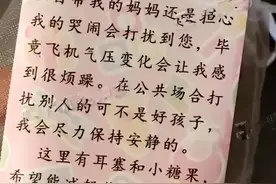 带我的妈妈还是担心
我的哭闹会打扰到您，毕
竟飞机气压变化会让我感
到很烦躁。在公共场合打
扰别人的可不是好孩子，
我会尽力保持安静的。
这里有耳塞和小糖果，
希望能